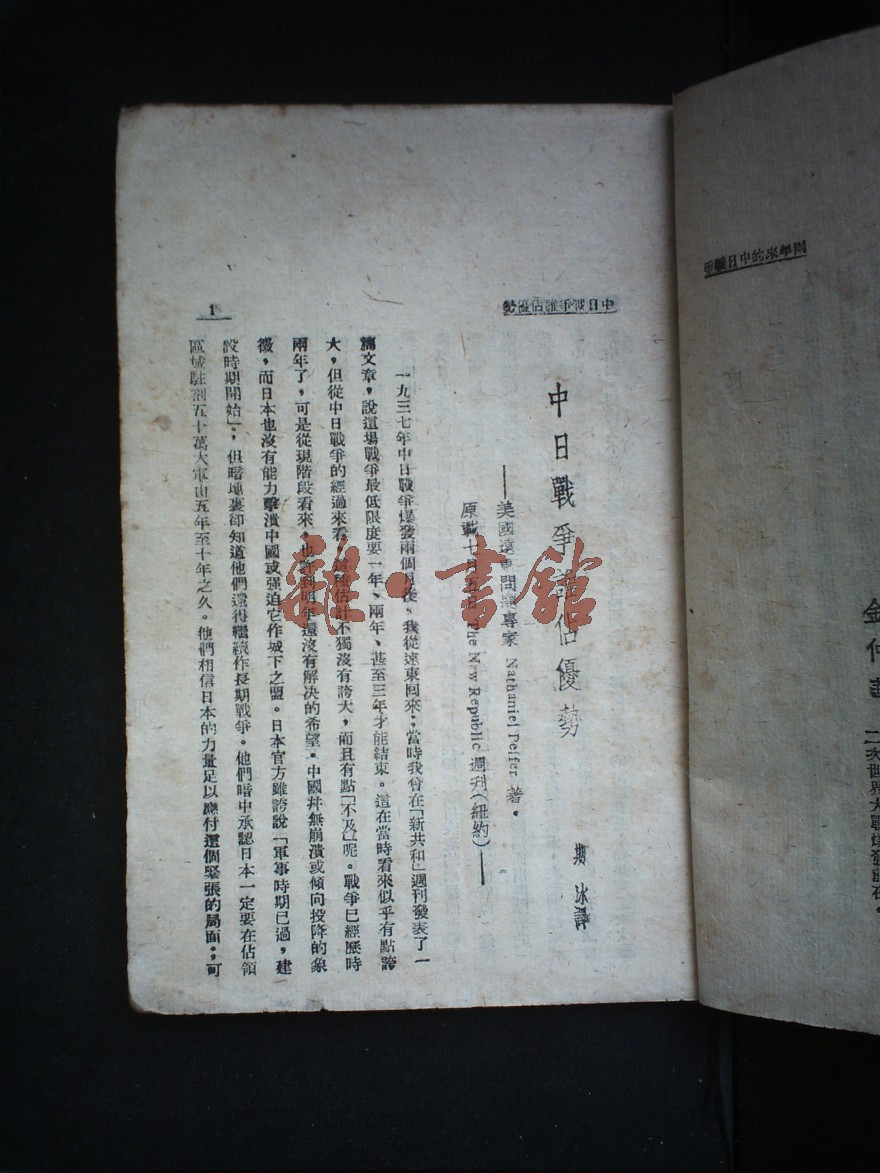 兩年來的中日戰爭
二次世界大戰爆發前夜。
中日戰爭誰佔優勢
中日戰爭誰佔優勢
——美國遠東問題專家 Nathaniel Peffer 著。
原載十月 The New Republic 週刊（紐約）——
斯冰譯
一九三七年中日戰爭爆發兩個月後，我從遠東回來；當時我曾在「新共和」週刊發表了一
篇文章，說這場戰爭最低限度要一年、兩年、甚至三年才能結束。這在當時看來似乎有點誇
大，但從中日戰爭的經過來看，這種估計不獨沒有誇大，而且有點「不及」呢。戰爭已經歷時
兩年了，可是從現階段看來，也許到明年還沒有解决的希望。中國幷無崩潰或傾向投降的象
徵，而日本也沒有能力擊潰中國或强迫它作城下之盟。日本官方雖誇說「軍事時期已過，建
設時期開始」，但暗地裏卻知道他們還得繼續作長期戰爭。他們暗中承認日本一定要在佔領
區域駐剳五十萬大軍由五年至十年之久。他們相信日本的力量足以應付這個緊張的局面；可
1
雜·書館